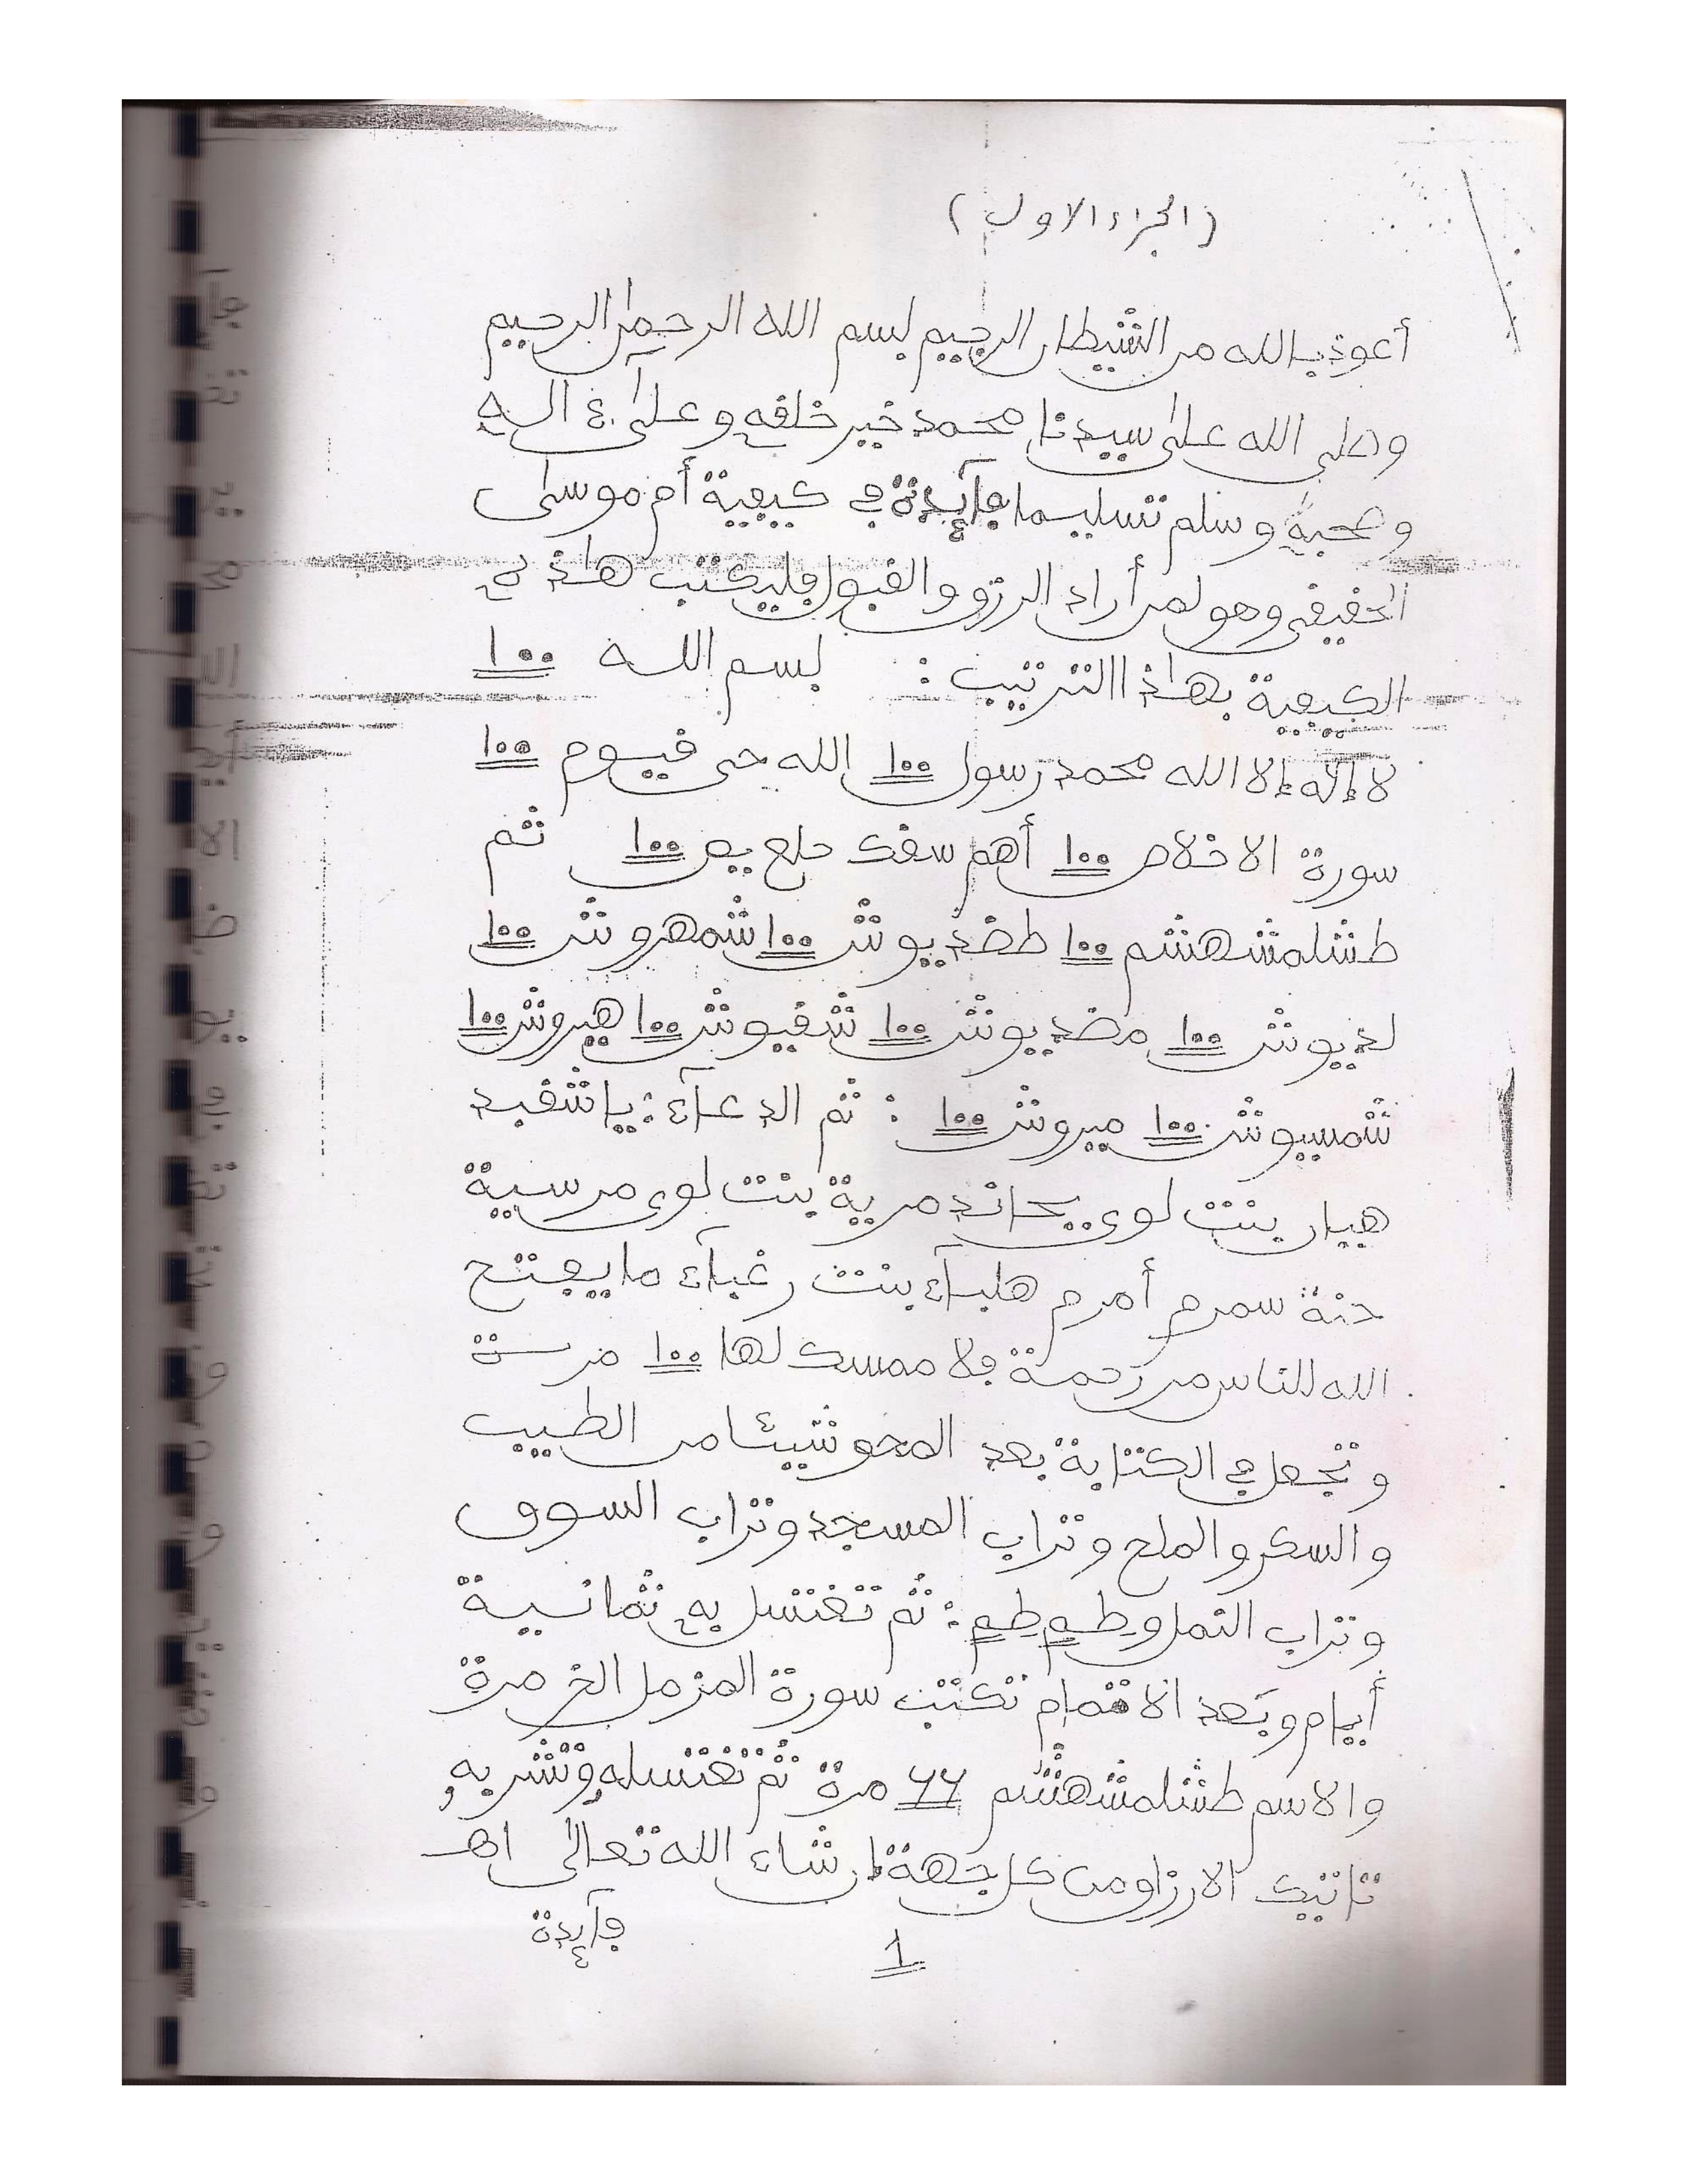 (الجزء الاول)
أعوذ بالله من الشيطان الرجيم بسم الله الرحمن الرحيم
وصلى الله على سيدنا محمد خير خلقه وعلى ءاله
وصحبه وسلم تسليما فآئدة في كيفية أم موسى
الحقيقي وهو لمن أراد الرزق والقبول فليكتب هاذه
الكيفية بهاذا الترتيب: بسم الله ١٠٠
لا إله إلا الله محمد رسول ١٠٠ الله حي قيوم ١٠٠
سورة الاخلاص ١٠٠ أهم سقك حلع يص ١٠٠ ثم
طشلمشهشم ١٠٠ طضديوش ١٠٠ شمهروش ١٠٠
لديوش ١٠٠ مضديوش ١٠٠ شفيوش ١٠٠ هيروش ١٠٠
شمسيوش ١٠٠ ميروش ١٠٠ : ثم الدعآء: يا شفيد
هيبار بنت لوي مرية بنت لوي مرسية
حنة سمرم أمرم هلبآء بنت رغبآء ما يفتح
الله للناس من رحمة فلا ممسك لها ١٠٠
وتجعل في الكتابة بعد المحو شيئا من الطيب
والسكر والملح وتراب المسجد وتراب السوق
وتراب النمل : ثم تغتسل به ثمانية
أيام وبعد الاتمام تكتب سورة المزمل الخ مرة
والاسم طشلمشهشم ٦٦ مرة ثم تغتسله وتشربه
تاتيك الارزاق من كل جهة إن شاء الله تعالى اهـ
فآئدة
1